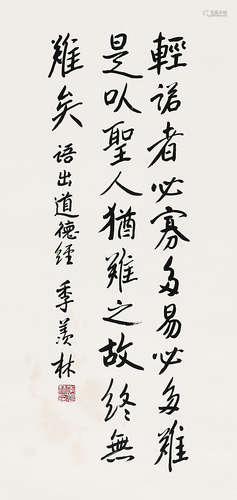 輕諾者必寡多易必多難
是以聖人猶難之故終無
難矣
語出道德經 季羨林